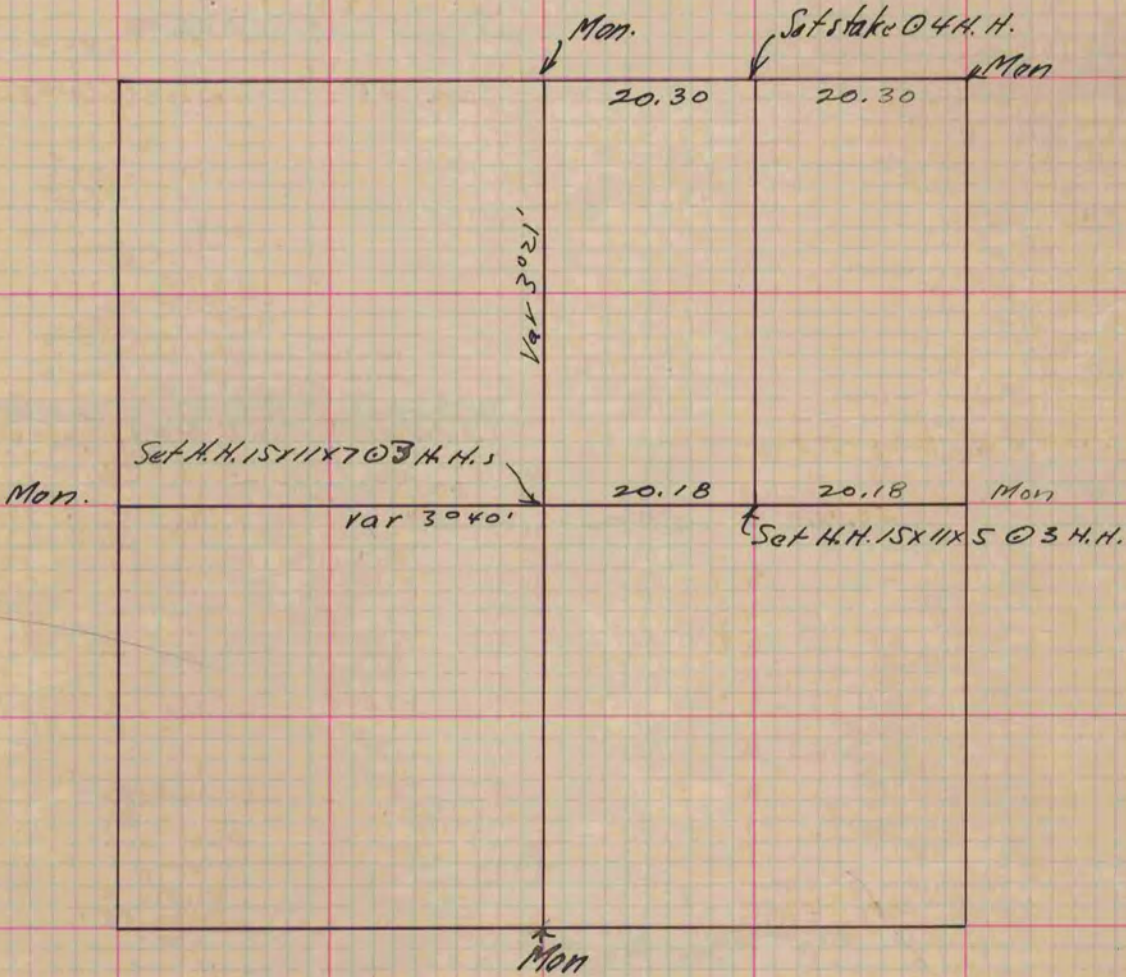 Mon.
Set stake ⊙ 4 H. H.
Mon
20.30
20.30
Var 3°21'
Set H.H. 15x11x7 ⊙ 3 H. H.s
Mon.
20.18
20.18
Mon
var 3°40'
Set H.H. 15x11x5 ⊙ 3 H.H.
Mon